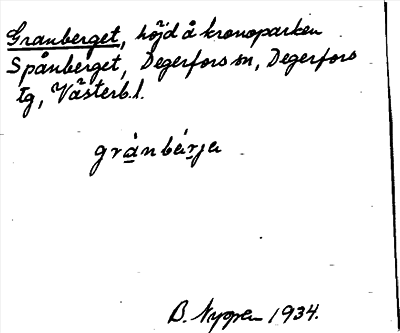 Granberget, höjd å kronoparken
Spånberget, Degerfors sn, Degerfors
tg, Västerb.l.
grånbärja
B. Nyman 1934.